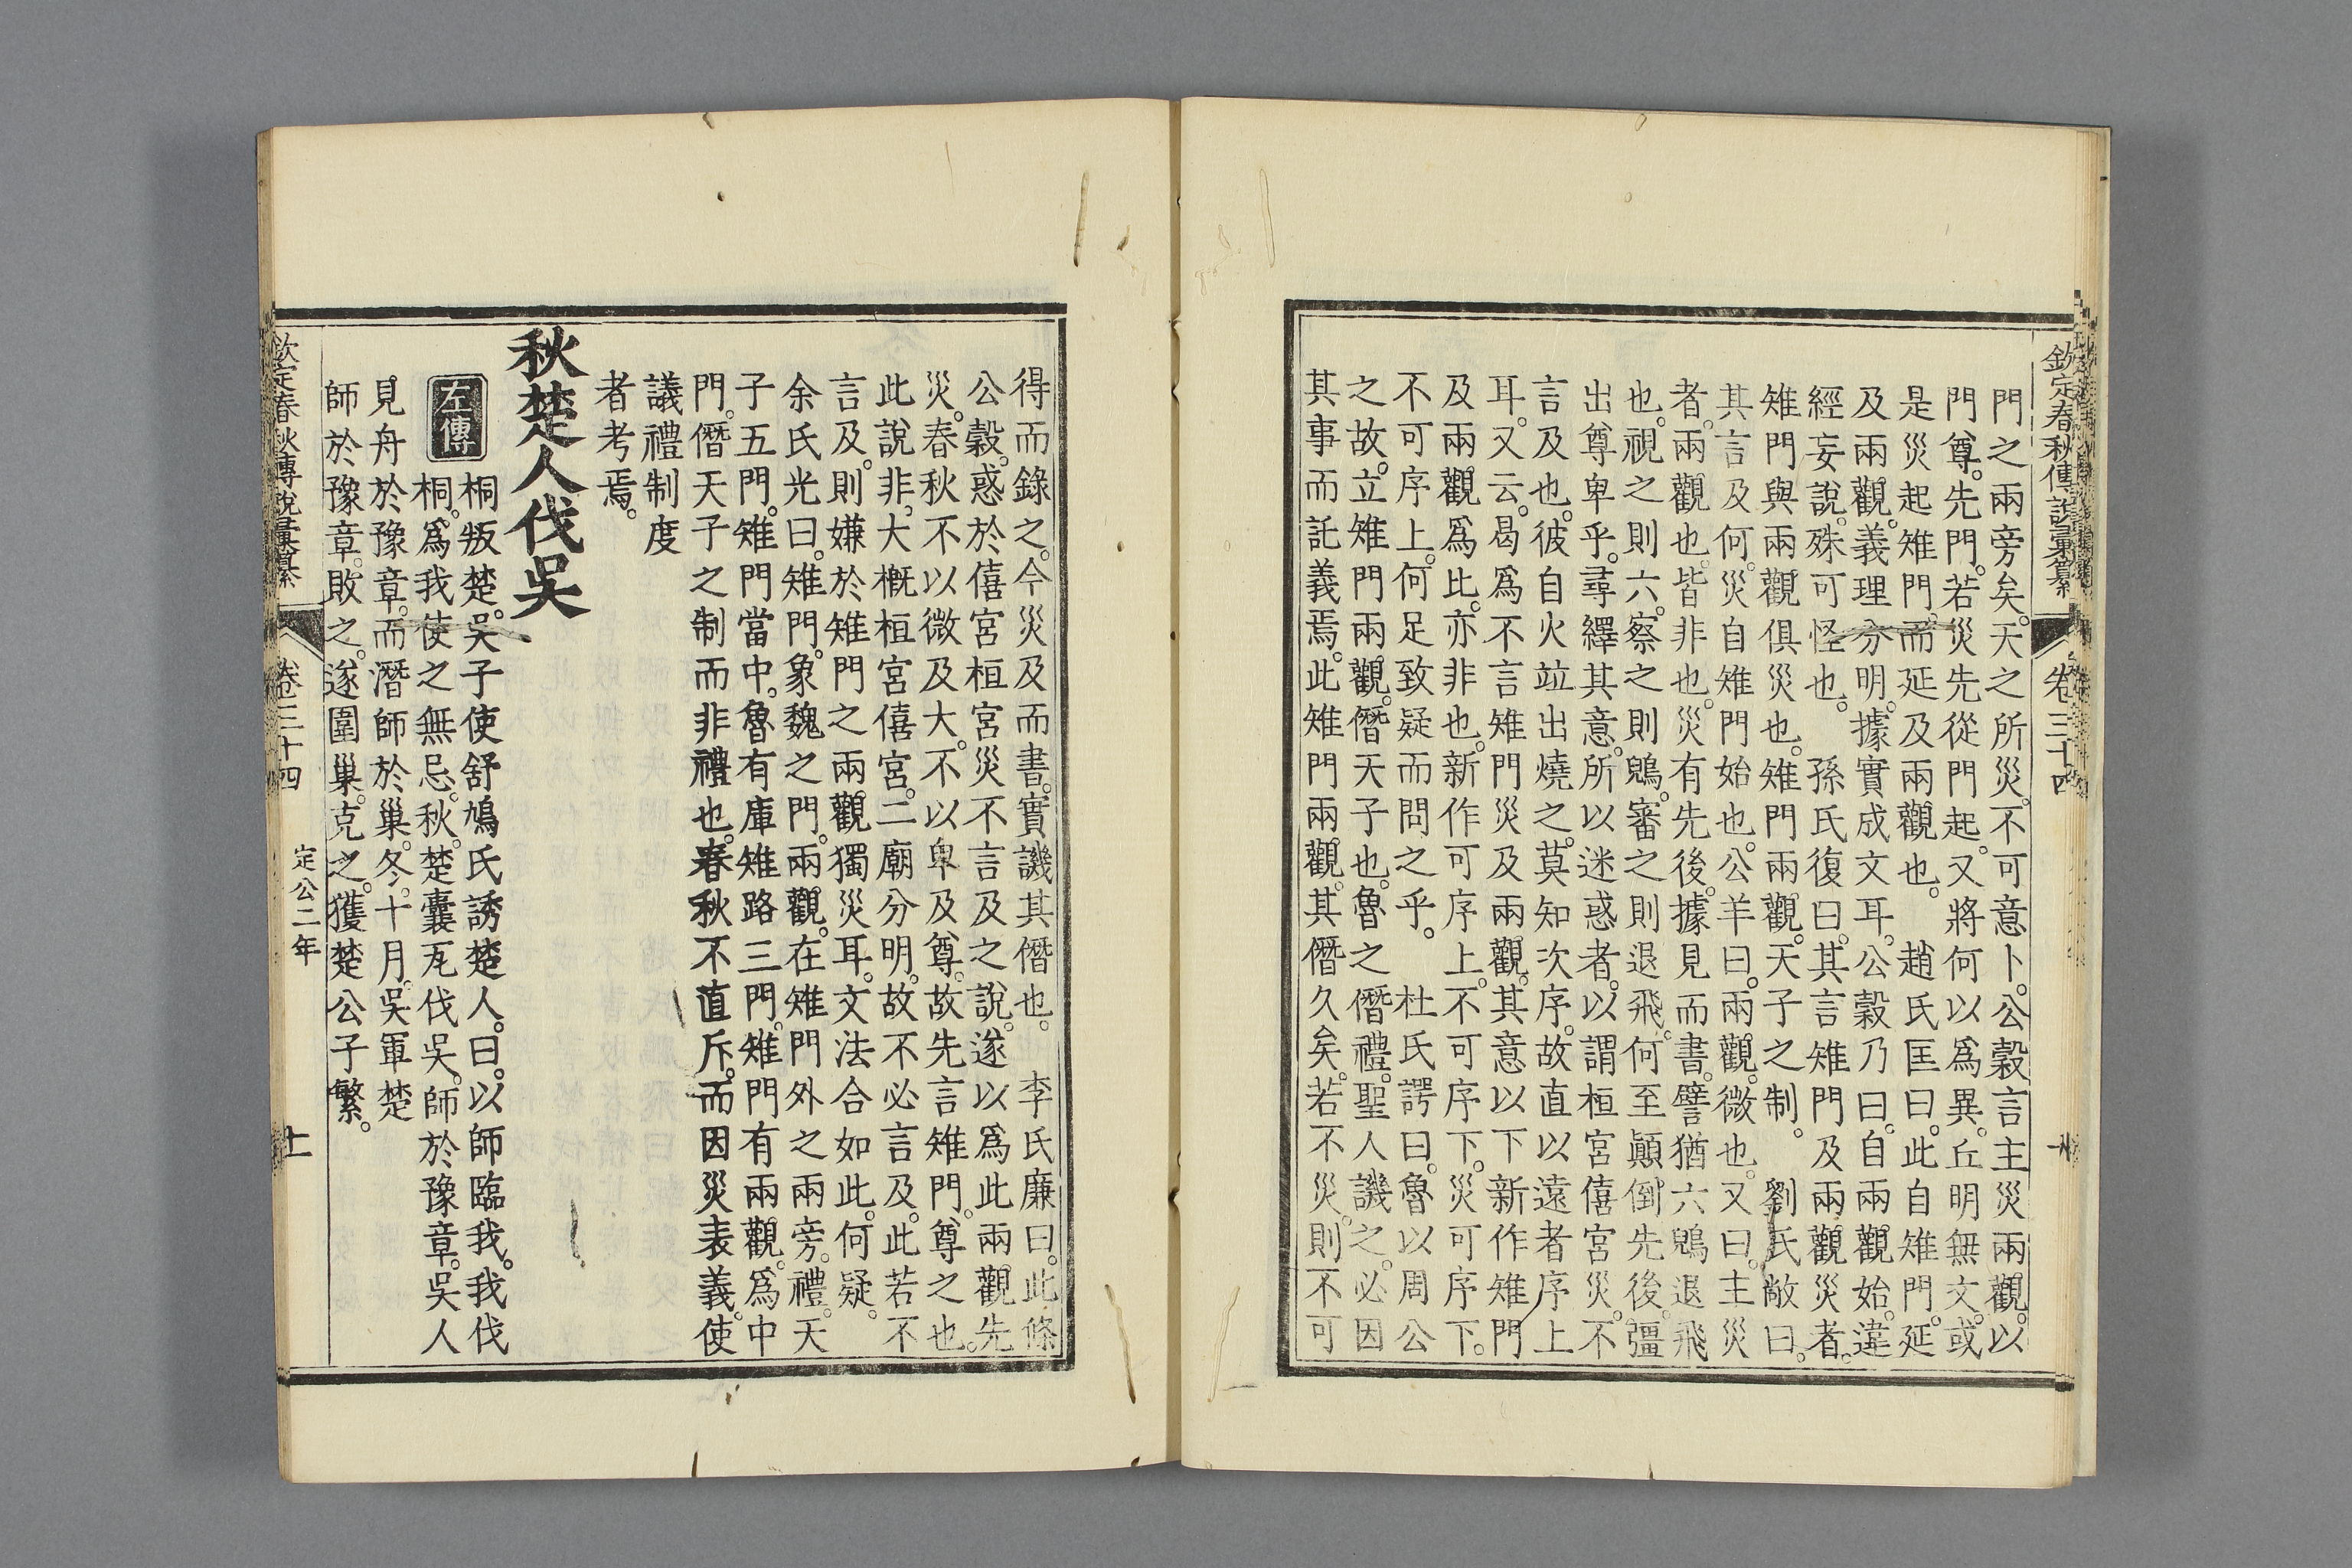 欽定春秋傳說彙纂 卷三十四
門之兩旁矣。天之所災。不可意卜。公穀言主災兩觀。以
門尊。先門。若災先從門起。又將何以爲異。丘明無文。或
是災起雉門。而延及兩觀也。 趙氏匡曰。此自雉門。延
及兩觀。義理分明。據實成文耳。公穀乃曰。自兩觀始。違
經妄說。殊可怪也。 孫氏復曰。其言雉門及兩觀災者。
雉門與兩觀俱災也。雉門兩觀。天子之制。 劉氏敞曰。
其言及何。災自雉門始也。公羊曰。兩觀。微也。又曰。主災
者。兩觀也。皆非也。災有先後。據見而書。譬猶六鶂退飛
也。視之則六。察之則鶂。審之則退飛。何至顚倒先後。彊
出尊卑乎。尋繹其意。所以迷惑者。以謂桓宮僖宮災。不
言及也。彼自火竝出燒之。莫知次序。故直以遠者序上
耳。又云。曷爲不言雉門災及兩觀。其意以下新作雉門
及兩觀爲比。亦非也。新作可序上。不可序下。災可序下。
不可序上。何足致疑而問之乎。 杜氏諤曰。魯以周公
之故。立雉門兩觀。僭天子也。魯之僭禮。聖人譏之。必因
其事而託義焉。此雉門兩觀。其僭久矣。若不災。則不可
得而錄之。今災及而書。實譏其僭也。 李氏廉曰。此條
公穀。惑於僖宮桓宮災不言及之說。遂以爲此兩觀先
災。春秋不以微及大。不以卑及尊。故先言雉門。尊之也。
此說非。大槪桓宮僖宮。二廟分明。故不必言及。此若不
言及。則嫌於雉門之兩觀獨災耳。文法合如此。何疑。
余氏光曰。雉門。象魏之門。兩觀。在雉門外之兩旁。禮。天
子五門。雉門當中。魯有庫雉路三門。雉門有兩觀。爲中
門。僭天子之制而非禮也。春秋不直斥。而因災表義。使
議禮制度
者考焉。
秋楚人伐吳
左傳
桐叛楚。吳子使舒鳩氏誘楚人。曰。以師臨我。我伐
桐。爲我使之無忌。秋。楚囊瓦伐吳。師於豫章。吳人
見舟於豫章。而潛師於巢。冬。十月。吳軍楚
師於豫章。敗之。遂圍巢。克之。獲楚公子繁。
欽定春秋傳說彙纂 卷三十四 定公二年 十一